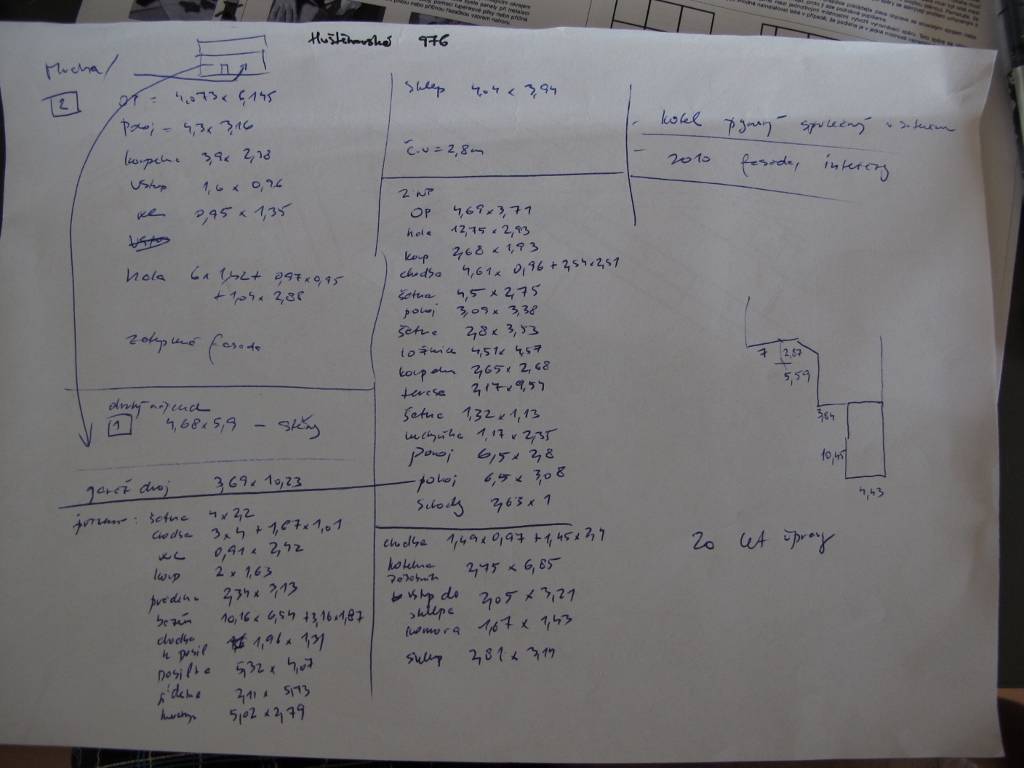 Huštěnovská 976
Mucha/
2
OP = 4,073 x 6,145
Pokoj = 4,3 x 3,16
koupelna 3,9 x 2,38
Vstup 1,6 x 0,96
WC 0,95 x 1,35
hala 6 x 1,42 + 0,97 x 0,95
+ 1,04 x 2,88
zateplená fasáda
druhý
1
4,68 x 5,9 - sklepy
garáž dvoj 3,69 x 10,23
přízemí: šatna 4 x 2,2
chodba 3 x 4 + 1,87 x 1,01
WC 0,91 x 2,42
koup 2 x 1,63
prádelna 2,34 x 3,13
bazén 10,16 x 6,54 + 3,16 x 1,87
chodba
k posil 1,96 x 1,31
posilovna 5,32 x 4,07
jídelna 2,11 x 5,13
kuchyň 5,02 x 2,79
Sklep 4,04 x 3,94
č.v = 2,8m
2 NP
OP 4,69 x 3,71
hala 12,75 x 2,93
koup 2,68 x 1,93
chodba 4,61 x 0,96 + 2,54 x 2,51
šatna 4,5 x 2,75
pokoj 3,09 x 3,38
šatna 2,8 x 3,53
ložnice 4,51 x 4,57
koupelna 2,65 x 2,68
terasa 2,17 x 9,54
šatna 1,32 x 1,13
kuchyňka 1,17 x 2,35
pokoj 6,5 x 2,8
pokoj 6,5 x 3,08
Schody 2,63 x 1
chodba 1,49 x 0,97 + 1,45 x 2,4
kotelna
2,75 x 6,85
vstup do
sklepa 2,05 x 3,21
komora 1,67 x 1,43
Sklep 2,81 x 3,14
- kotel plynový společný s
- 2010 fasáda, interiéry
7
2,87
5,59
3,84
10,45
4,43
20 let úpravy